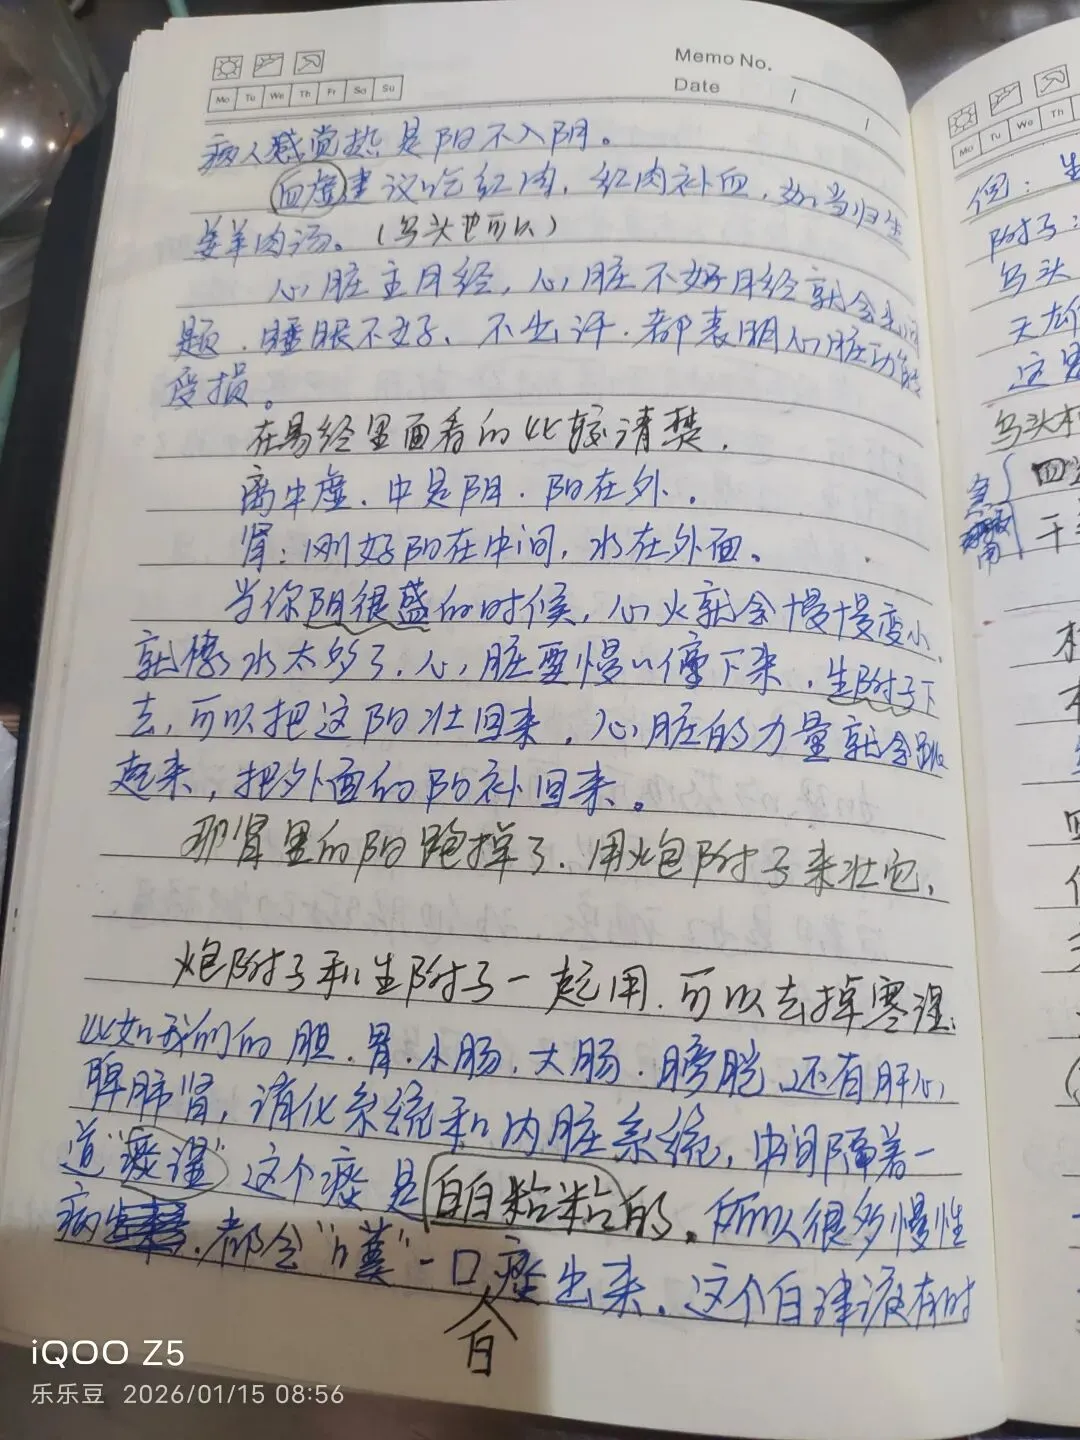 Memo No.
Date
Mo Tu We Th Fr Sa Su
病人感觉热是阳不入阴。
血虚建议吃红肉，红肉补血，如当归生
姜羊肉汤。（乌头也可以）
心脏主月经，心脏不好月经就会出问
题．睡眠不好、不出汗．都表明心脏功能
受损。
在易经里面看的比较清楚．
离中虚．中是阴．阳在外．
肾：刚好阳在中间，水在外面。
当你阴很盛的时候，心火就会慢慢变小，
就像水太多了．心脏要慢慢停下来．生附子下
去，可以把这阳壮回来．心脏的力量就会跳
起来，把外面的阳补回来。
那肾里的阳跑掉了．用炮附子来壮它．
炮附子和生附子一起用．可以去掉寒湿．
比如我们的胆．胃．小肠．大肠．膀胱．还有肝心
脾肺肾，消化系统和内脏系统，中间隔着一
道“痰湿”这个痰是白白粘粘的．所以很多慢性
病．都会“口" 一口痰出来．这个白津液有时
白
Mo Tu We Th
但：生
附子：
乌头
天雄
这里
乌头
四
干
急
用